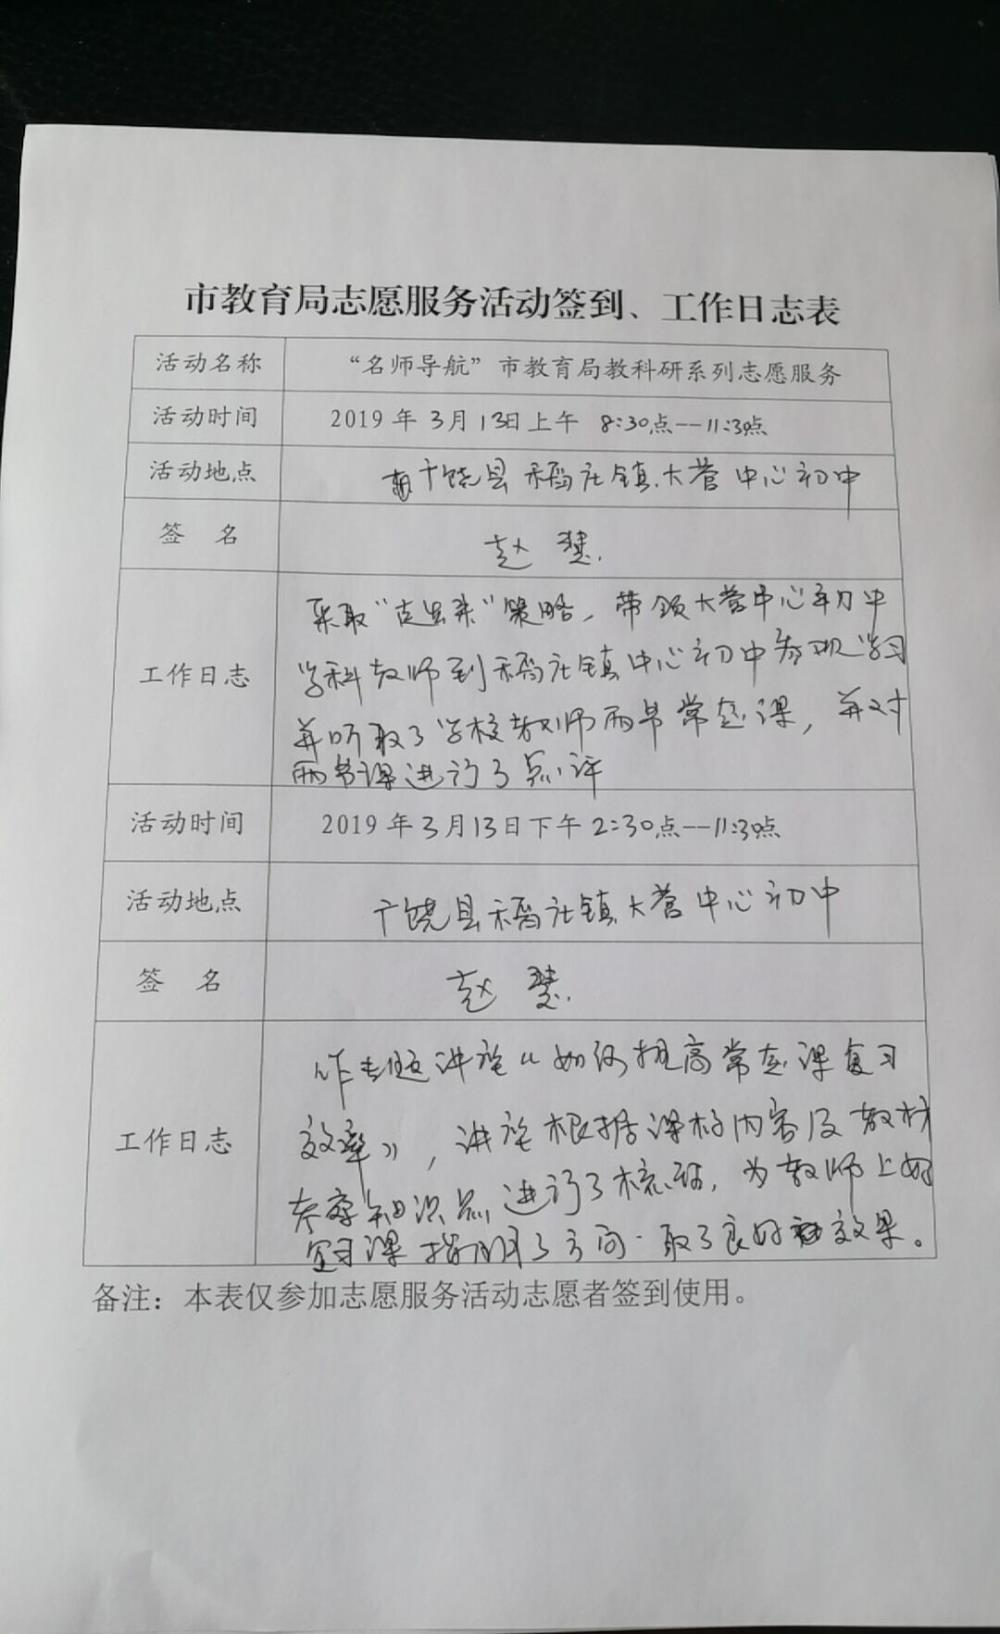 市教育局志愿服务活动签到、工作日志表
活动名称 “名师导航”市教育局教科研系列志愿服务
活动时间 2019年3月13日上午 8:30点--11:30点
活动地点 广饶县稻庄镇大营中心初中
签 名 赵慧.
采取“走出来”策略，带领大营中心初中
工作日志 学科教师到稻庄镇中心初中参观学习
并听取了学校教师两节常态课，并对
两节课进行了点评
活动时间 2019年3月13日下午2:30点--11:30点
活动地点 广饶县稻庄镇大营中心初中
签 名 赵慧.
作专题讲座《如何提高常态课复习
工作日志 效率》，讲座根据课标内容及教材
知识点进行了梳理，为教师上好
复习课指明了方向.取了良好效果。
备注：本表仅参加志愿服务活动志愿者签到使用。